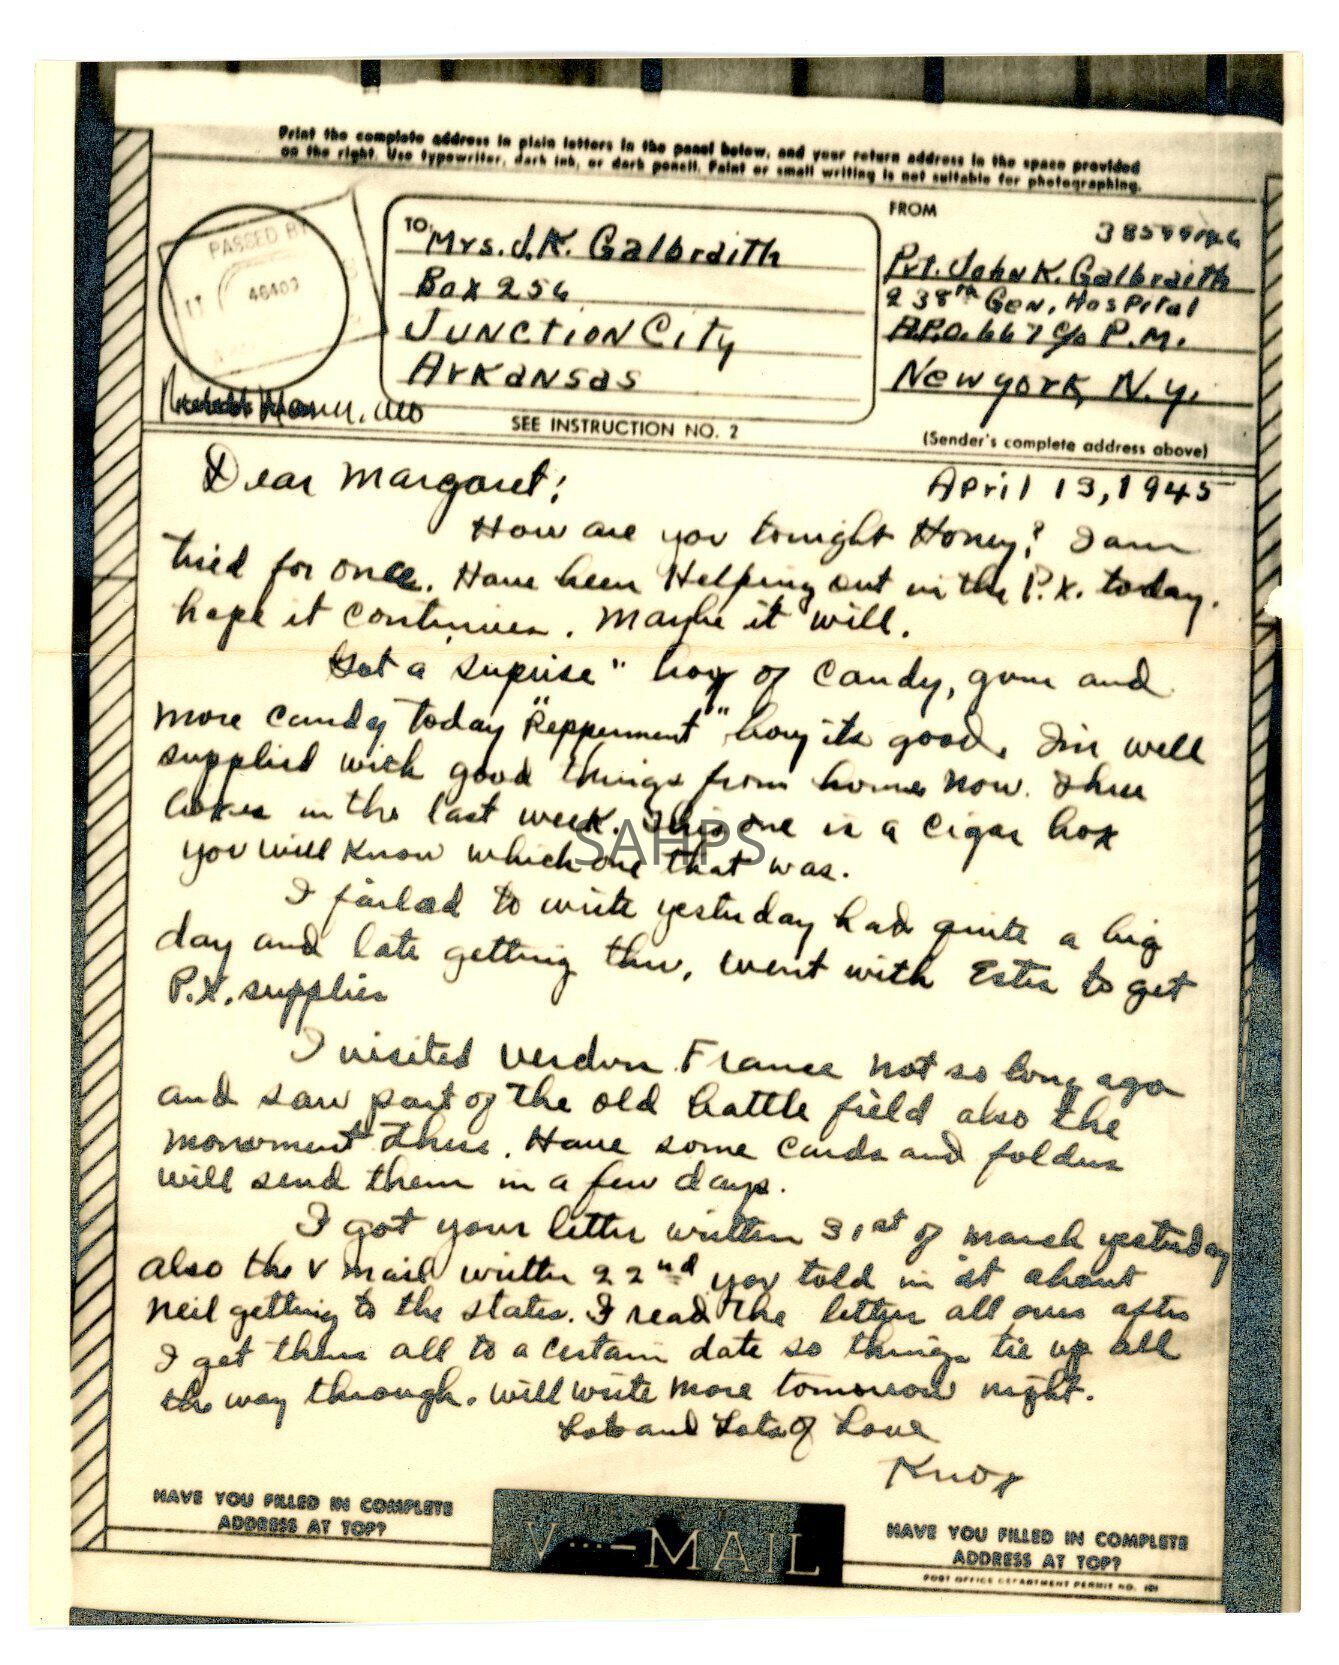 Print the complete address in plain letters in the panel below, and your return address in the space provided
on the right. Use typewriter, dark ink, or dark pencil. Faint or small writing is not suitable for photographing.
PASSED BY
46409
TO
Mrs. J.K. Galbraith
Box 256
Junction City
Arkansas
SEE INSTRUCTION NO. 2
FROM
Pvt. John K. Galbraith
238th Gen. Hospital
A.P.O. 667 c/o P.M.
New York, N.Y.
(Sender's complete address above)
Dear Margaret:
April 13, 1945
How are you tonight Honey? I am
tried for once. Have been Helping out in the P.X. today.
hope it continues. Maybe it will.
Got a suprise" box of candy, gum and
more candy today "Pepperment" boy its good. I'm well
supplied with good things from home now. Three
boxes in the last week. This one is a cigar box
you will know which one that was.
SAHPS
I failed to write yesterday had quite a big
day and late getting thru, went with Estes to get
P.X. supplies
I visited Verdun France not so long ago
and saw part of the old battle field also the
monoment there. Have some cards and folders
will send them in a few days.
I got your letter written 31st of march yesterday
also the V mail written 22nd you told in it about
Neil getting to the states. I read the letters all over after
I get them all to a certain date so things tie up all
the way through. Will write more tomorrow night.
Lots and Lots of Love
Knox
HAVE YOU FILLED IN COMPLETE
ADDRESS AT TOP?
V···—MAIL
HAVE YOU FILLED IN COMPLETE
ADDRESS AT TOP?
POST OFFICE DEPARTMENT PERMIT NO. 101